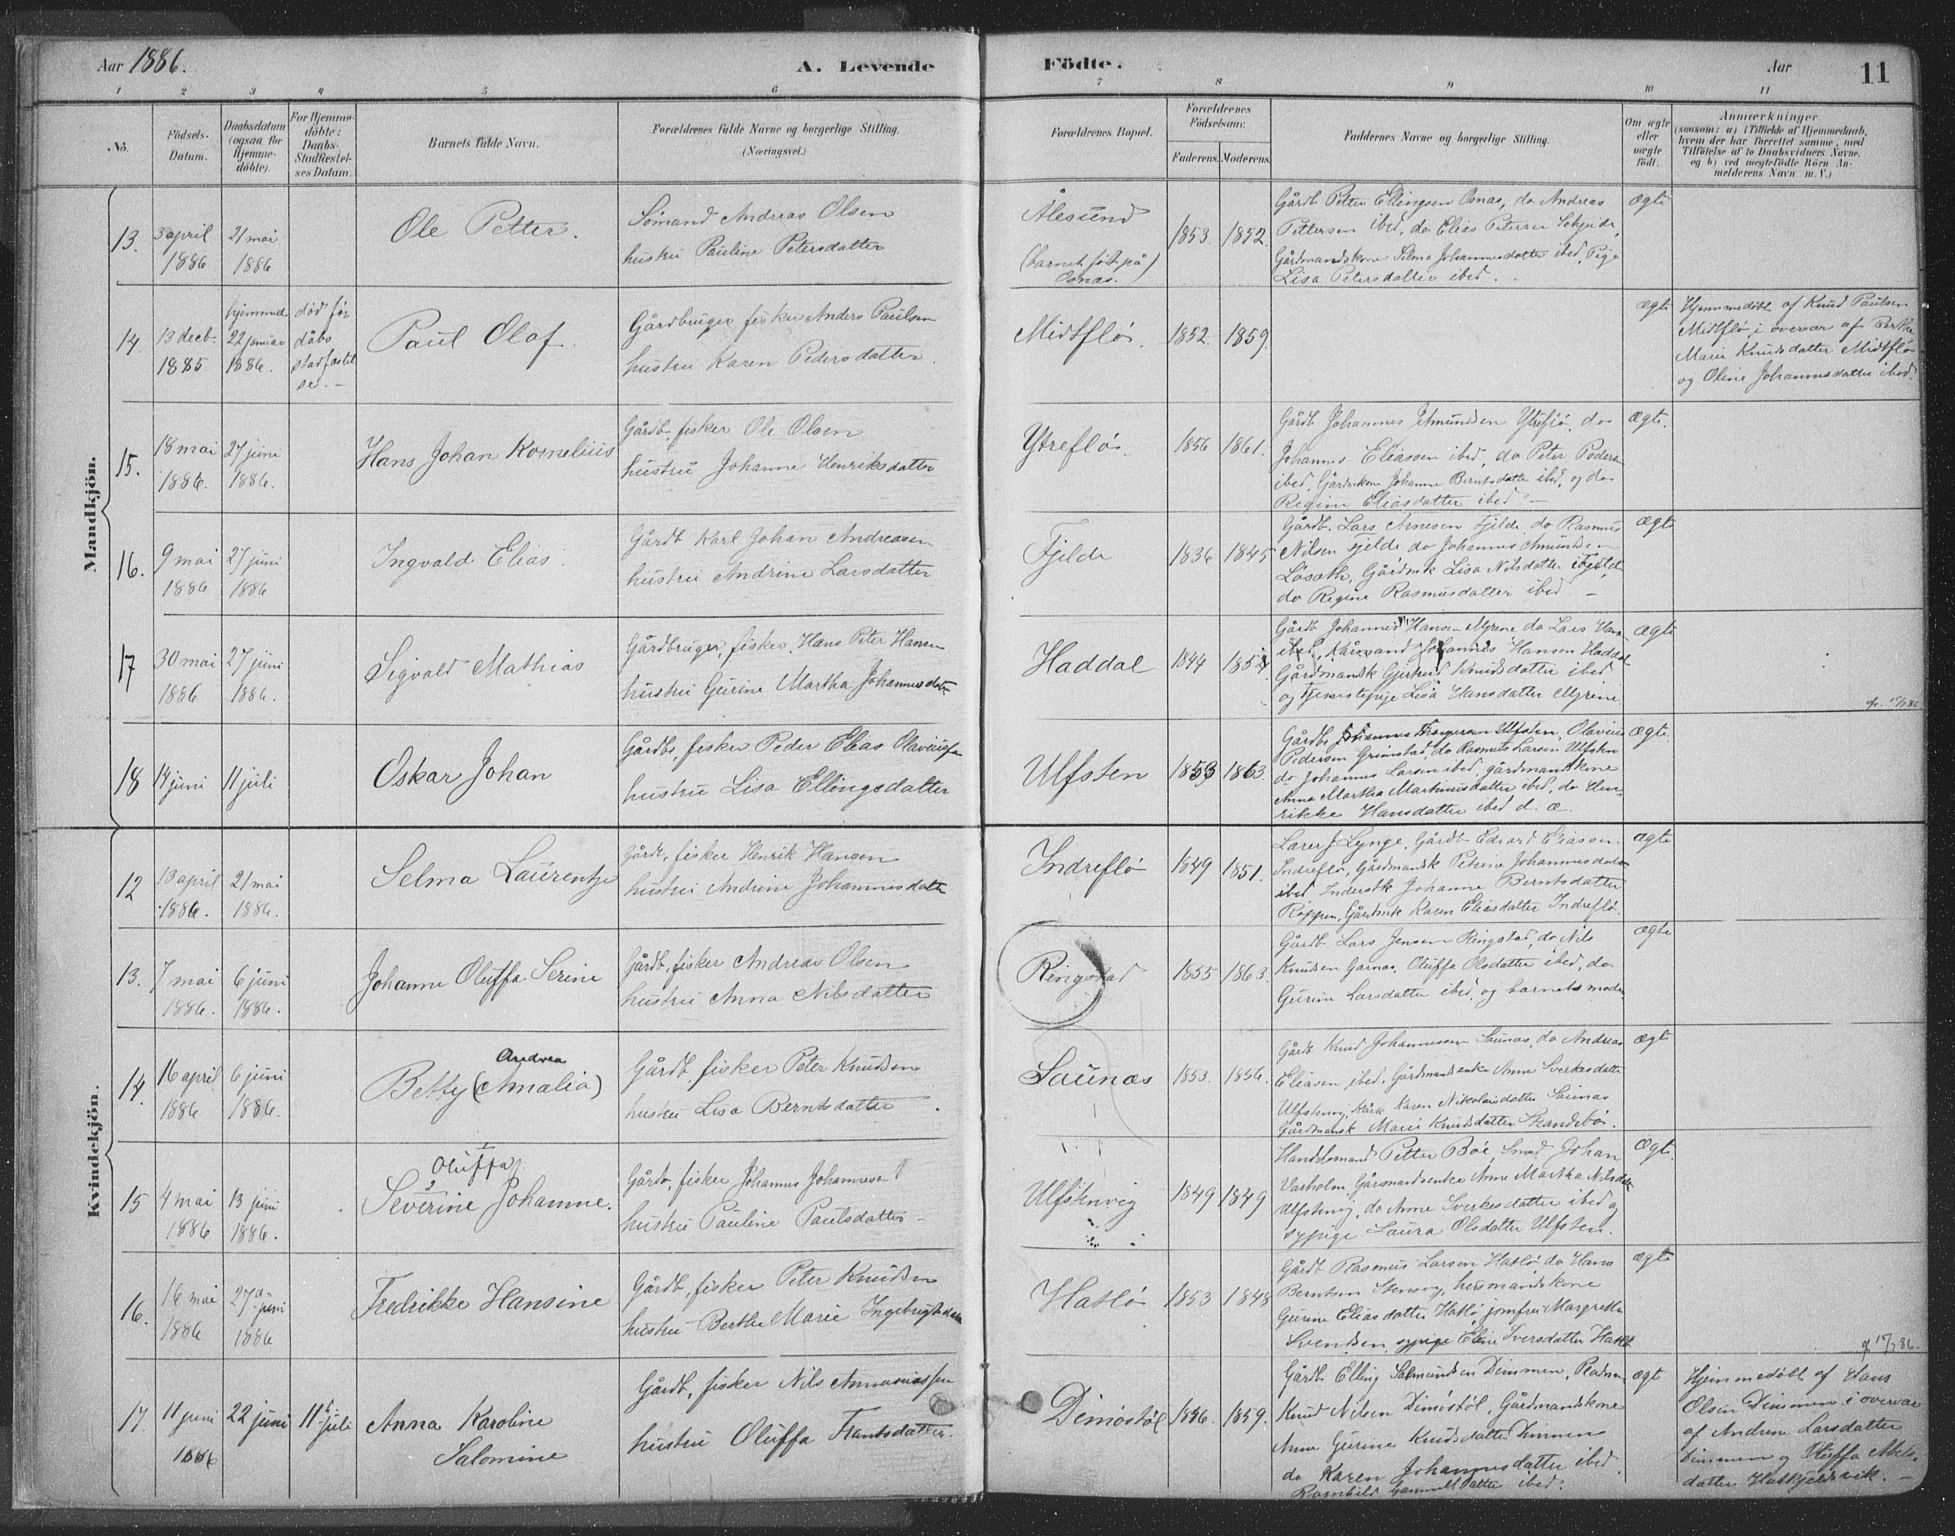 Aar 1886.
A. Levende
Födte.
Aar
11
1 2 3 4 5 6 7 8 9 10 11
No.
Födsels-
Datum.
Daabsdatum
(ogsaa for
Hjemme-
döbte).
For Hjemme-
döbte:
Daabs-
Stadfæstel-
ses Datum.
Barnets fulde Navn.
Forældrenes fulde Navne og borgerlige Stilling.
(Næringsvei.)
Forældrenes Bopæl.
Forældrenes
Födselsaar.
Faderens. Moderens.
Faddernes Navne og borgerlige Stilling.
Om ægte
eller
uægte
födt.
Anmærkninger
(saasom: a) i Tilfælde af Hjemmedaab,
hvem der har forrettet samme, med
Tilföielse af to Daabsvidners Navne,
og b) ved uægtefödte Börn An-
melderens Navn m. V.)
Mandkjön.
13.
3 april
1886
21 mai
1886
Ole Petter.
Sömand Andreas Olsen
hustru Pauline Petersdatter
Ålesund
(barnet født på)
Osnas.
1853. 1852.
Gårdb. Petter Ellingsen Osnas, do Andreas
Pettersen ibid, do Elias Petersen
Gårdmandskone Selma Johannesdatter ibid, Pige
Lisa Petersdatter ibid. -
ægte
14.
13 decb.
1885
hjemmed.
22 januar
1886.
död för
dåbs
stadfæstel
se. -
Paul Olaf.
Gårdbruger, fisker Anders Paulsen
hustru Karen Pedersdatter.
Midtflø.
1852. 1859.
ægte
Hjemmedöbt af Knud Paulsen
Midtflø i overvær af Berthe
Marie Knudsdatter Midtflø
og Oline Johannesdatter ibid.
15.
18 mai
1886.
27 juni
1886.
Hans Johan Kornelius
Gårdb. fisker Ole Olsen
hustru Johanne Henriksdatter
Ytreflø.
1856 1861.
Gårdb. Johannes Amundsen Ytreflø, do
Johannes Eliassen ibid, do Peter Peders.
ibid, Gårdmkone Johanne Berntsdatter ibid, og do
Regine Eliasdatter ibid -
Ægte.
16.
9 mai
1886
27 juni
1886
Ingvald Elias.
Gårdb. Karl Johan Andreasen
hustru Andrine Larsdatter
Fjelde
1836 1845
Gårdb. Lars Arnesen Fjelde, do Rasmus
Nilsen Fjelde do Johannes Amundsen
Løseth, Gårdmk Lisa Nilsdatter Fjelde,
do Regine Rasmusdatter ibid. -
Ægte
17
30 mai
1886
27 juni
1886.
Sigvald Mathias
Gårdbruger, fisker, Hans Peter Hansen
hustru Gurine Martha Johannesdatr
Haddal
1844
Gårdb. Johannes Hansen Myrene do Lars Hans
ibid, Johannes Hansen Haddal
Gårdmandsk Gjertrud Knudsdatter ibid
og Tjenestepige Lisa Hansdatter Myrene
Ægte
18
14 juni
11 juli
Oskar Johan
Gårdb, fisker Peder Elias Olavius
hustru Lisa Ellingsdatter
Ulfsten
1853 1863.
Gårdb. Johannes Ulfsten, Olavius
Pedersen Grimstad, do Rasmus Larsen Ulfsten
do Johannes Larsen ibid, gårdmandskone
Anna Martha Martinusdatter ibid, do Hen-
rikke Hansdatter ibid d. æ.
Ægte.
Kvindekjön.
12
13 april
1886.
21 mai
1886.
Selma Laurentze
Gårdb, fisker Henrik Hansen
hustru Andrine Johannesdatter
Indreflø
1849 1851.
Lærer J Lynge, Gårdb. Edvard Eliassen
Indreflø, Gårdmandsk Petrine Johannesdatter
ibid, Inderstk Johanne Berntsdatter
Røppen, Gårdmk Karen Eliasdatter Indreflø.
ægte
13.
7 mai
1886.
6 juni
1886.
Johanne Oluffa Serine
Gårdb, fisker Andreas Olsen
hustru Anna Nilsdatter
Ringstad
1855 1863
Gårdb. Lars Jensen Ringstad, do Nils
Knudsen Garnas, Oluffa Olsdatter ibid, do
Gurine Larsdatter ibid, og barnets moder
Ægte
14.
16 april
1886
6 juni
1886.
Andrea
Betty (Amalia)
Gårdb. fisker Peter Knudsen
hustru Lisa Berntsdatter
Saunas
1853. 1856.
Gårdb Knud Johannessen Saunas, do Andreas
Eliasen ibid, Gårdmandsenke Anne Sverkesdatter
Ulfstenvig, Karen Nikolaisdatter Saunas
Gårdmansk Marie Knudsdatter Skandebø.
Ægt
15
4 mai
1886
13 juni
1886.
Oluffa
Severine Johanne.
Gårdb, fisker Johannes Johannessen
hustru Pauline Paulsdatter -
Ulfstenvig
1849 1849
Handelsmand Petter Bøe, Johan
Varholm Gårmandsenke Anne Martha Nilsdatr
Ulfstenvig, do Anne Sverkesdatter ibid og
sypige Laura Olsdatter Ulfsten.
Ægte.
16.
16 mai
1886
27de
juni
1886
Fredrikke Hansine
Gårdb, fisker Peter Knudsen
hustru Berthe Marie Ingebrigtsdatr
Hatlø
1853 1848
Gårdb Rasmus Larsen Hatlø, do Hans
Berntsen Stensvig, husmandskone
Gurine Eliasdatter Hatlø, jomfru Margrethe
Svendsen, sypige Eline Iversdatter Hatlø
ægte
17.
11 juni
1886
22 juni
11te juli
Anna Karoline
Salomine
Gårdb, fisker Nils Annaniassen
hustru Oluffa Frantsdatter.
Dimøstøl
1856. 1859.
Gårdb. Elling Salmundsen Dimmen,
Knud Nilsen Dimøstøl, Gårdmandskone
Anne Gurine Knudsdatter Dimmen
do Karen Johannesdatter ibid.
Ragnhild Gammelsdatter ibid.
ægt
Hjemmedöbt af Hans
Olsen Dimmen i overvær
af Andrine Larsdatter
Dimmen og Oluffa Abels-
datter Hatkjeldsvik. -